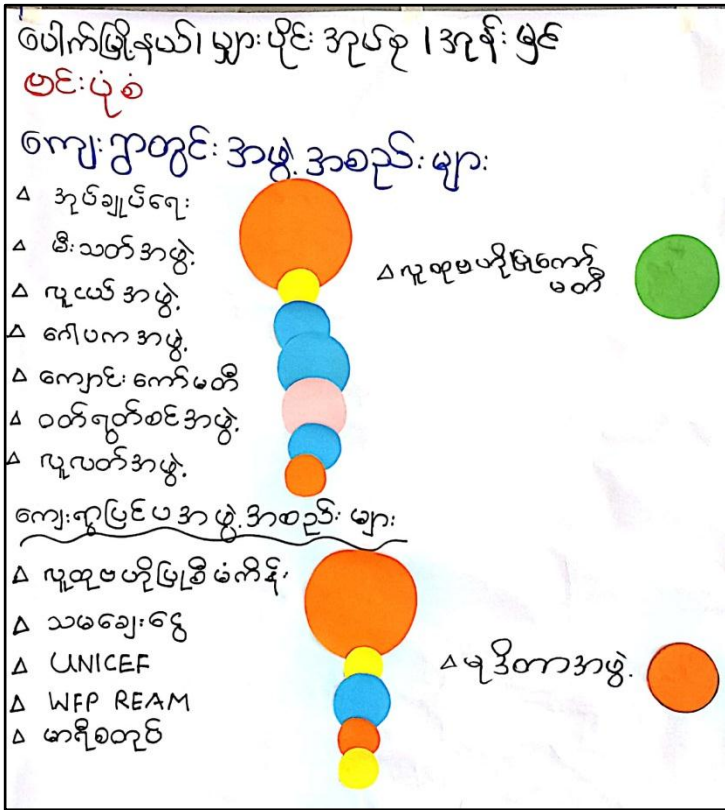 ပေါက်မြို့နယ်၊ မျှားပိုင်း အုပ်စု ၊ အုန်းမှင်
ဗင်းပုံစံ
ကျေးရွာတွင်း အဖွဲ့အစည်းများ
Δ အုပ်ချုပ်ရေး
Δ မီးသတ်အဖွဲ့
Δ လူငယ်အဖွဲ့
Δ ဂေါပကအဖွဲ့
Δ ကျောင်းကော်မတီ
Δ ဝတ်ရွတ်စဉ်အဖွဲ့
Δ လူလတ်အဖွဲ့
Δ လူထုဗဟိုပြုကော်
မတီ
ကျေးရွာပြင်ပအဖွဲ့အစည်းများ
Δ လူထုဗဟိုပြုစီမံကိန်း
Δ သမချေးငွေ
Δ UNICEF
Δ WFP REAM
Δ မာရီစတုပ်
Δ မုဒိတာအဖွဲ့